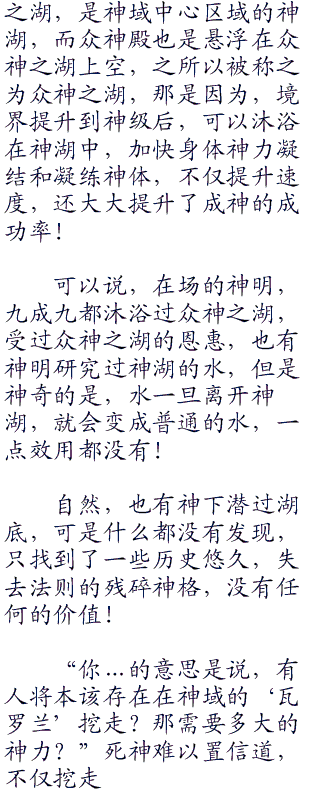 之湖，是神域中心区域的神
湖，而众神殿也是悬浮在众
神之湖上空，之所以被称之
为众神之湖，那是因为，境
界提升到神级后，可以沐浴
在神湖中，加快身体神力凝
结和凝练神体，不仅提升速
度，还大大提升了成神的成
功率！
可以说，在场的神明，
九成九都沐浴过众神之湖，
受过众神之湖的恩惠，也有
神明研究过神湖的水，但是
神奇的是，水一旦离开神
湖，就会变成普通的水，一
点效用都没有！
自然，也有神下潜过湖
底，可是什么都没有发现，
只找到了一些历史悠久，失
去法则的残碎神格，没有任
何的价值！
“你…的意思是说，有
人将本该存在在神域的‘瓦
罗兰’挖走？那需要多大的
神力？”死神难以置信道，
不仅挖走